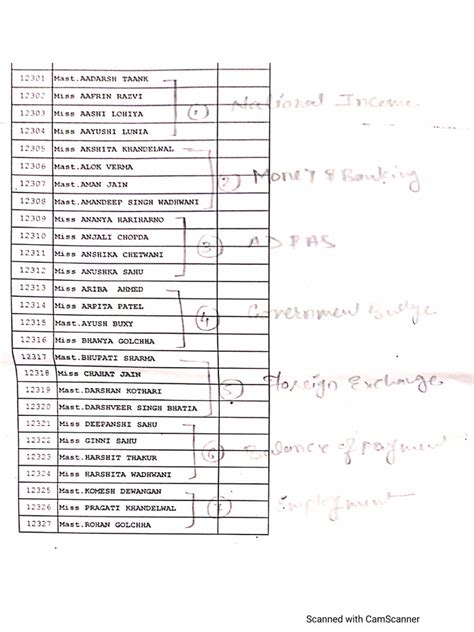 12301 Mast.AADARSH TAANK
12302 Miss AAFRIN RAZVI
① National Income
12303 Miss AASHI LOHIYA
12304 Miss AAYUSHI LUNIA
12305 Miss AKSHITA KHANDELWAL
12306 Mast.ALOK VERMA
② Money & Banking
12307 Mast.AMAN JAIN
12308 Mast.AMANDEEP SINGH WADHWANI
12309 Miss ANANYA HARIHARNO
12310 Miss ANJALI CHOPDA
③ ADPAS
12311 Miss ANSHIKA CHETWANI
12312 Miss ANUSHKA SAHU
12313 Miss ARIBA AHMED
12314 Miss ARPITA PATEL
④ Government Budge
12315 Mast.AYUSH BUXY
12316 Miss BHAWYA GOLCHHA
12317 Mast.BHUPATI SHARMA
12318 Miss CHAHAT JAIN
⑤ Foreign Exchange
12319 Mast.DARSHAN KOTHARI
12320 Mast.DARSHVEER SINGH BHATIA
12321 Miss DEEPANSHI SAHU
12322 Miss GINNI SAHU
⑥ Balance of payment
12323 Mast.HARSHIT THAKUR
12324 Miss HARSHITA WADHWANI
12325 Mast.KOMESH DEWANGAN
12326 Miss PRAGATI KHANDELWAL
⑦ Employment
12327 Mast.ROHAN GOLCHHA
Scanned with CamScanner